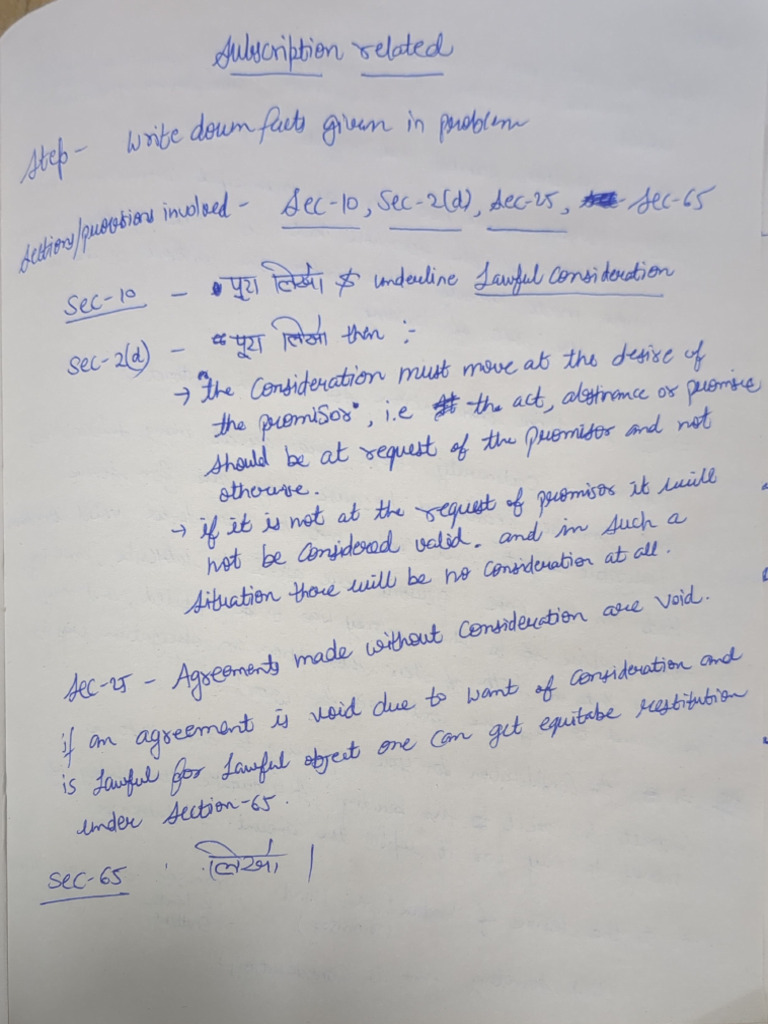 Subscription related
Step - Write down facts given in problem
Sections/provisions involved - Sec-10, Sec-2(d), Sec-25, Sec-65
Sec-10 - पूरा लिखो & underline Lawful consideration
Sec-2(d) - पूरा लिखो then :-
→ "the Consideration must move at the desire of
the promisor", i.e the act, abstinance or promise
should be at request of the promisor and not
otherwise.
→ if it is not at the request of promisor it will
not be considered valid. and in such a
situation there will be no consideration at all.
Sec-25 - Agreements made without consideration are void.
if an agreement is void due to want of consideration and
is lawful for lawful object one can get equitabe restitution
under Section-65.
Sec-65 लिखो |